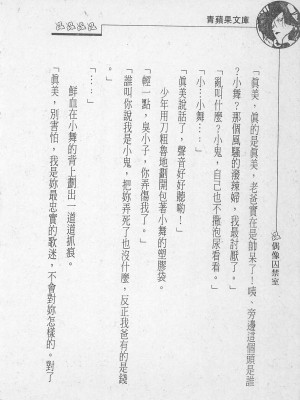 青蘋果文庫
偶像囚禁室
「眞美，眞的是眞美，老爸實在是帥呆了！咦、旁邊這個頭是誰
？小舞？那個風騷的潑辣婦，我最討厭了。」
「亂叫什麼？小鬼，自己也不撒泡尿看看。」
「小…小舞……」
「眞美說話了，聲音好好聽喲！」
少年用刀粗魯地劃開包著小舞的塑膠袋。
「輕一點，臭小子，你弄傷我了。」
「誰叫你說我是小鬼，把妳弄死了也沒什麼，反正我爸有的是錢
。」
「……」
鮮血在小舞的背上劃出一道道抓痕。
「眞美，別害怕，我是妳最忠實的歌迷，不會對妳怎樣的。對了